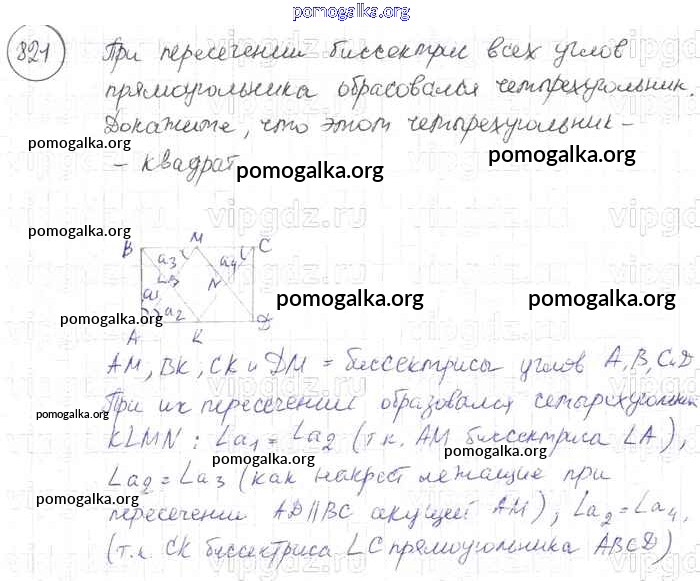 pomogalka.org
821 При пересечении биссектрис всех углов
прямоугольника образовался четырехугольник.
Докажите, что этот четырехугольник –
pomogalka.org
pomogalka.org
– квадрат
pomogalka.org
vipgdz.ru
pomogalka.org
B M C
a3 a4
L N
a1
a2
A K D
pomogalka.org
pomogalka.org
pomogalka.org
AM, BK, CK и DM = биссектрисы углов A, B, C и D
При их пересечении образовался четырехугольник
pomogalka.org
KLMN: ∠a1 = ∠a2 (т.к. AM биссектриса ∠A),
pomogalka.org
∠a2 = ∠a3 (как накрест лежащие при
pomogalka.org
пересечении AD||BC секущей AM), ∠a2 = ∠a4,
pomogalka.org
(т.к. CK биссектриса ∠C прямоугольника ABCD)